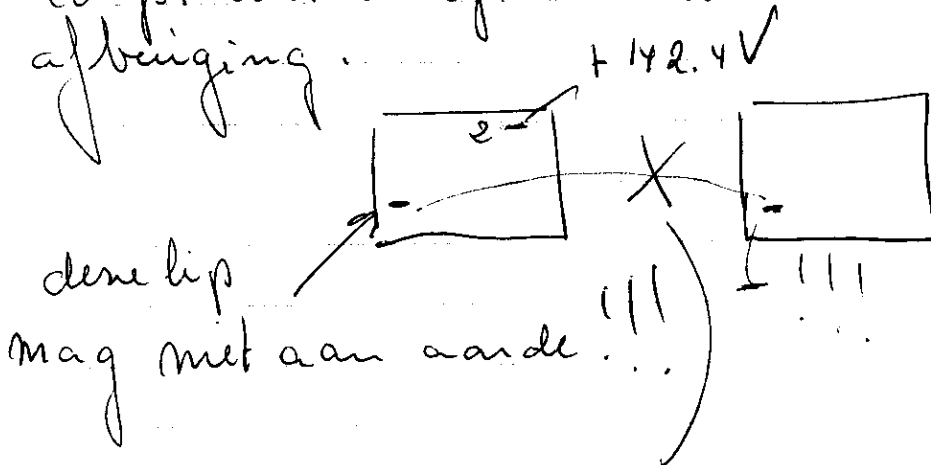 afbuiging.
+ 142.4V
2
deze lip
!!!
!!!
mag niet aan aarde.